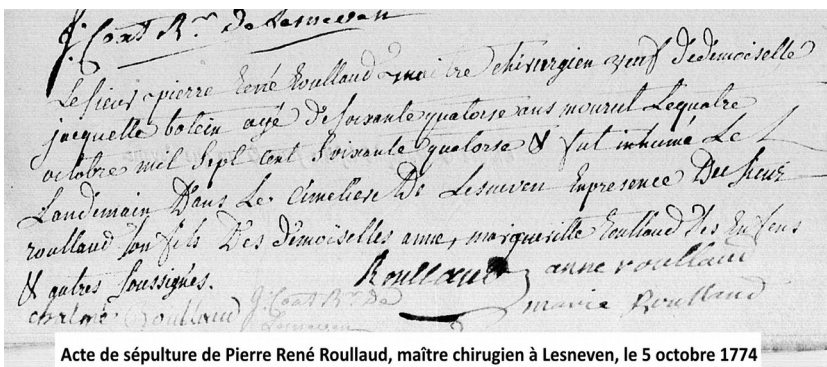 J: Cont R.r de Lesneven
Le sieur pierre René Roulland maitre chirurgien veuf de demoiselle
jacquette botein agé de soixante quatorse ans mourut Le quatre
octobre mil Sept Cent Soixante quatorse & fut inhumé Le
Landemain Dans Le Cimetiere De Lesneven En presence Du Sieur
roulland son fils Des demoiselles anne, margueritte Roulland Ses Enfens
& autres soussignés.
Roullaud anne roullaud
roulland J: Cont R.r De
Lesneven marie Roulland
Acte de sépulture de Pierre René Roullaud, maître chirugien à Lesneven, le 5 octobre 1774